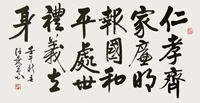 仁孝齊
家廉明
報國和
平處世
禮義立
身